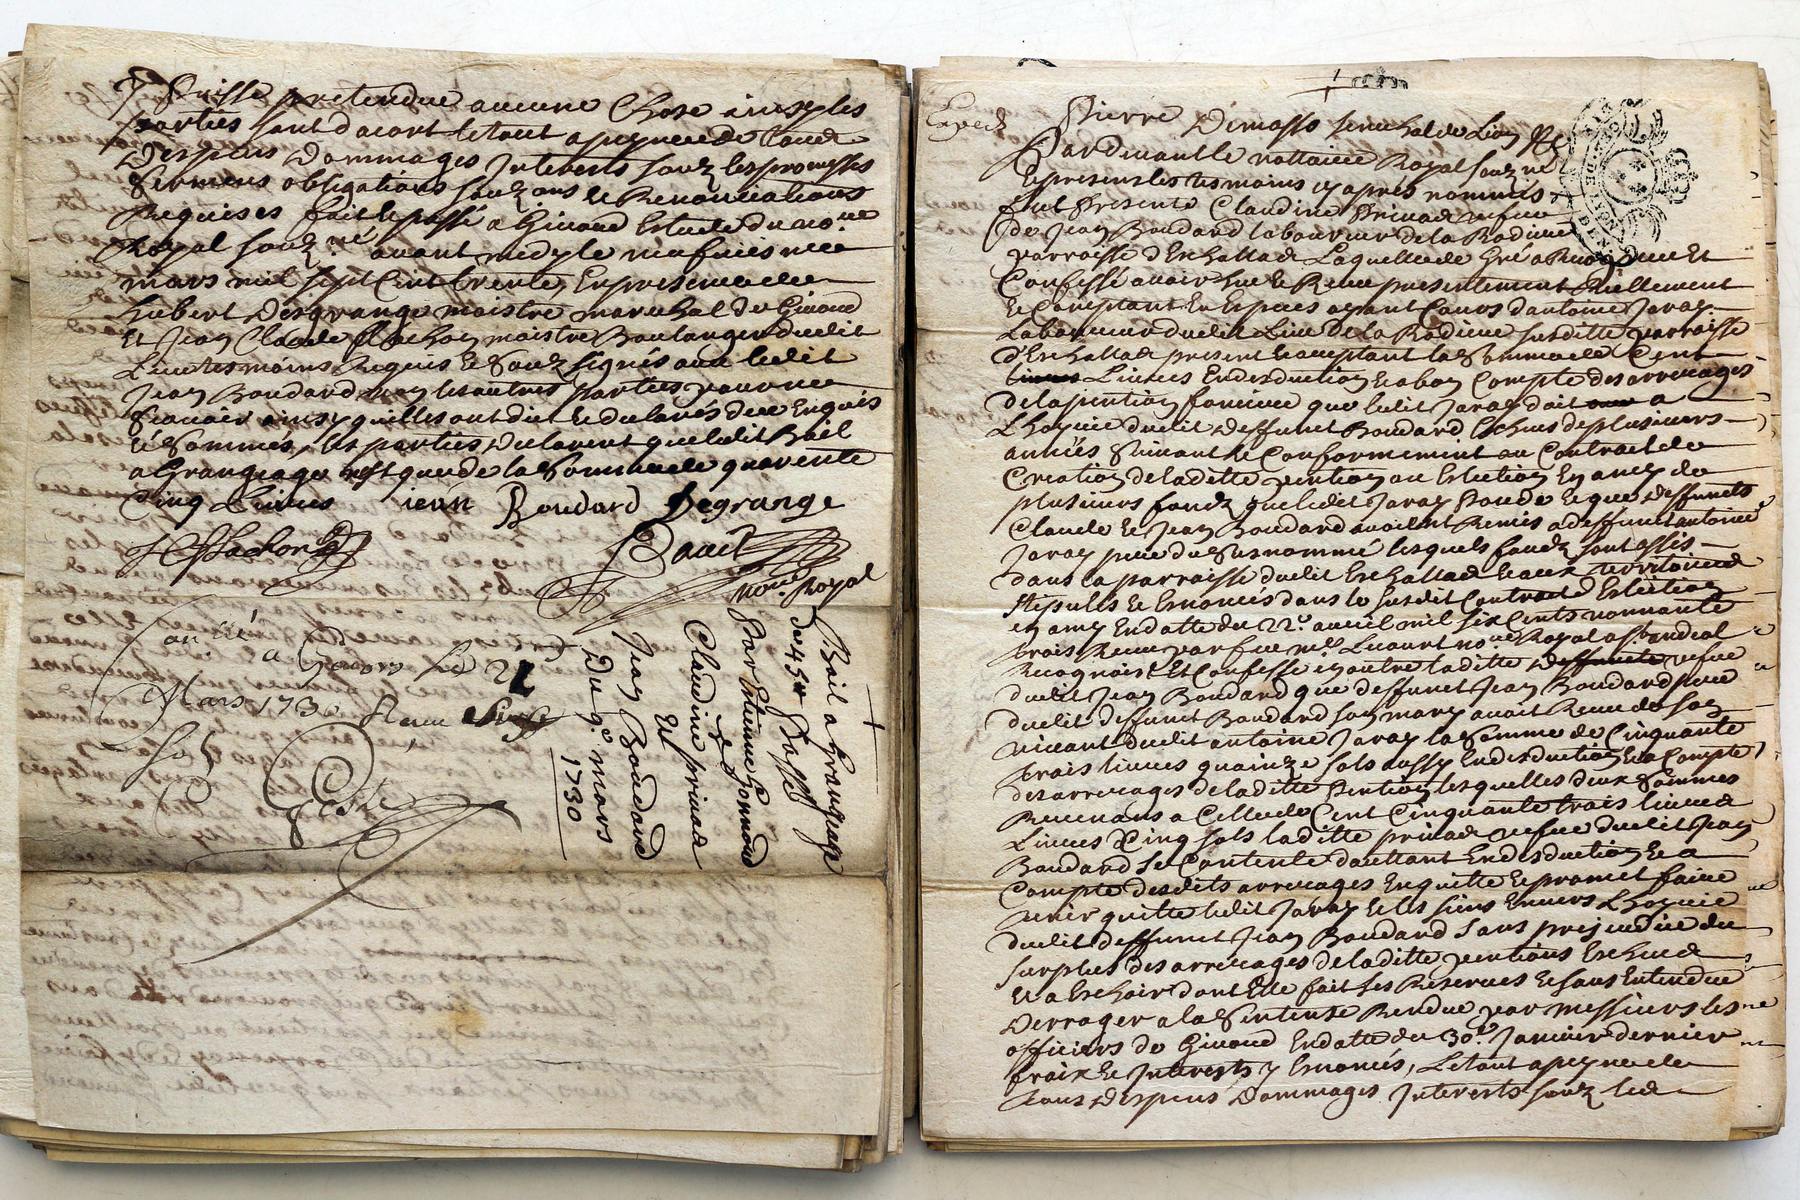 Puisse pretendue aucune Chose icusy les
parties sont dacort le tout a peyne de tous
Despens Dommages Interests soubz les promesses
sermens obligations soubz ans et Renonciations
Requises fait et passé a Givord Estude du no.re
Royal soubz.né avant midy le neufviesme
mars mil sept Cent trente, En presence de
hubert Desgrange maistre marechal de Givord
Et Jean Claude flachon maistre Boulanger dudit
Lieu tesmoins Requis et soubz signés avec ledit
Jean Boudard non les autres parties pour ne
scavoir ainsy quilles ont dit et declarés de ce Enquis
et sommés, les parties declarent que ledit Bail
a Grangeage nest que de la somme de quarente
Cinq Livres jean Boudard Degrange
J C fflachon
no.re Royal
a Givors le 22
Mars 1730 Receu
sols
Bail a Grangeage
de 45 lt passé
par Etienne bonnard
&
Claudine privad
Et
Jean Boudard
Du 9.e mars
1730
Exped
Pierre Dimasso senechal de Lion
Pardevant le nottaire Royal soubz né
Et presents les tesmoins cy apres nommés
fut Presente Claudine Privad vefve
de Jean Boudard laboureur de la Rodiere
parroisse d'Eschallad Laquelle de Gré a Recog due Et
Confessé avoir heu et Receu presentement Reellement
et Comptant En Especes ayant Cours d'antoine Jaray
Laboureur dudit Lieu de la Rodiere susditte parroisse
d'Eschallad present et acceptant la somme de Cent
Livres En desduction et a bon Compte des arrerages
de la pention fonciere que ledit Jaray doit a
Lhoyrie dudit deffunct Boudard Eschus de plusieurs
années suivant et Conformement au Contract de
Creation de la ditte pention au Eslection En amy de
plusieurs fondz que ledit Jaray possede et que deffuncts
Claude et Jean Boudard avoient Remis a deffunct antoine
Jaray pere du susnommé lesquels fondz sont assis
dans la parroisse dudit Eschallad et aux territoires
stipullés et Enoncés dans le susdit Contract d'Eslection
en amy En datte du 22.e avril mil six Cents nonnante
trois Receu par feu m.e Lucurt no.re Royal
Recognoist Et Confesse en outre la ditte vefve
dudit Jean Boudard que deffunct Jean Boudard pere
dudit deffunct Boudard son mary avoit Receu de son
vivant dudit antoine Jaray la somme de Cinquante
trois livres quainze sols aussy En desduction Et a Compte
des arrerages de la ditte Pention lesquelles deux sommes
Revenans a Celle de Cent Cinquante trois livres
Livres Cinq sols laditte privad vefve dudit Jean
Boudard se Contente d'auttant En desduction Et a
Compte desdits arrerages En quitte et promet faire
tenir quitte ledit Jaray Et les siens Envers Lhoyrie
dudit deffunct Jean Boudard sans prejudice du
surplus des arrerages de la ditte pentions Eschues
Et a Eschoir dont Elle fait ses Reserves et sans Entendre
Derroger a la sentense Rendue par messieurs les
officiers de Givord En datte du 30.e Janvier dernier
fraix et Interests y Enoncés, Le tout a peyne de
tous despens dommages Interests soubz les